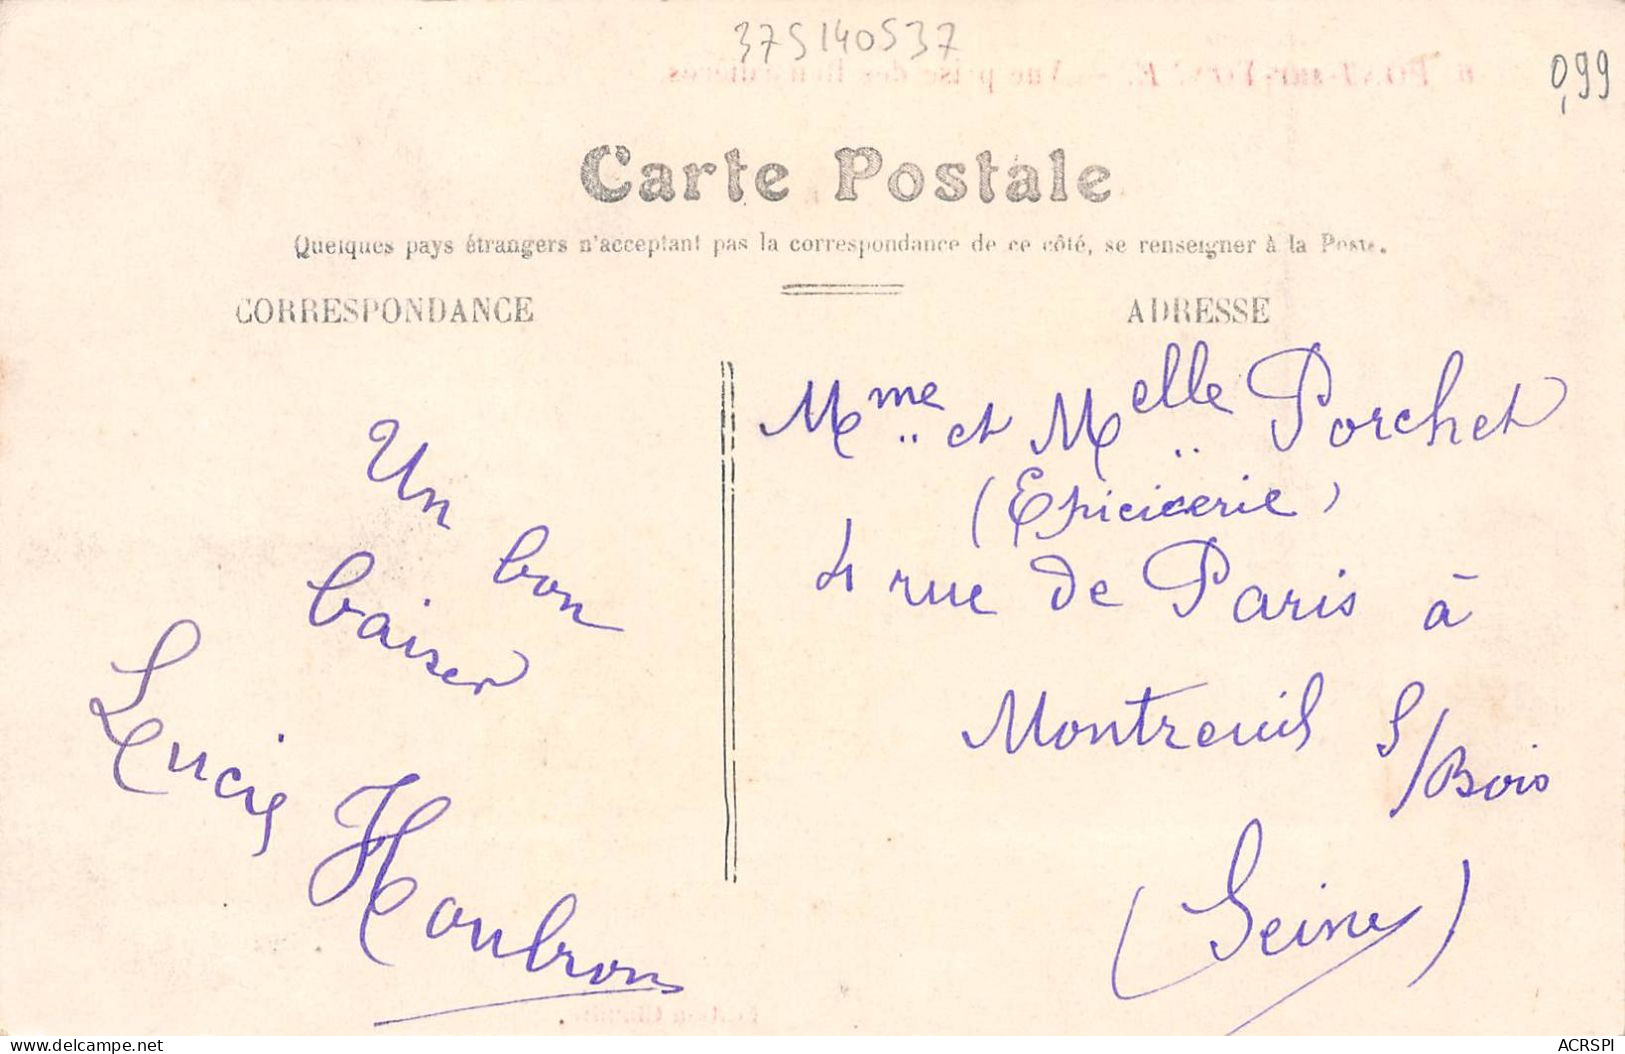 37S140S37
0,99
Carte Postale
Quelques pays étrangers n'acceptant pas la correspondance de ce côté, se renseigner à la Poste.
CORRESPONDANCE
ADRESSE
Un bon
baiser
Houbron
Mme et Melle Porchet
(Epicicerie)
4 rue de Paris à
Montreuil s/Bois
(Seine)
ACRSPI
delcampe.net